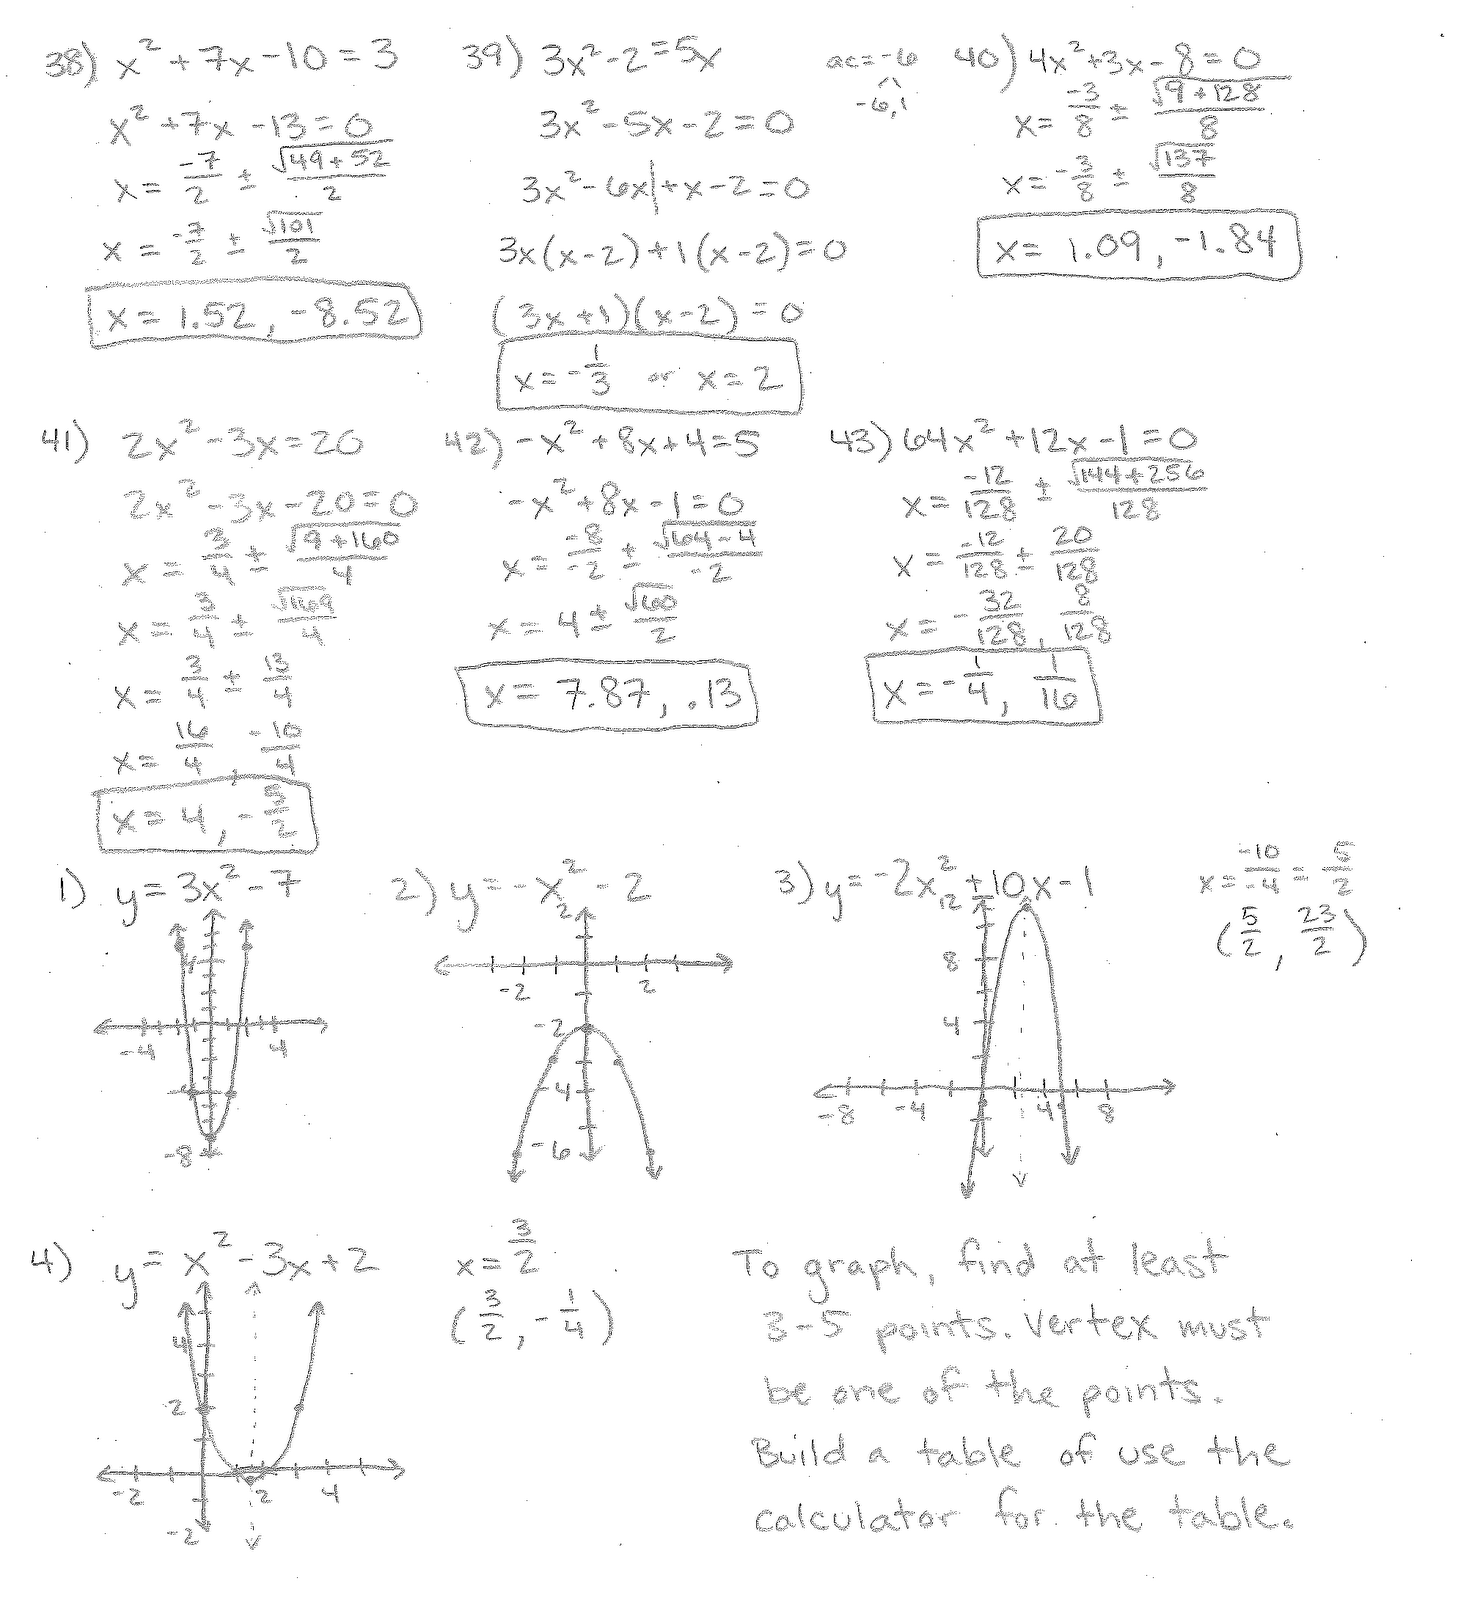 38) x² + 7x - 10 = 3
x² + 7x - 13 = 0
x = -7/2 ± √(49 + 52)/2
x = -7/2 ± √101/2
x = 1.52, -8.52
39) 3x² - 2 = 5x
ac = -6
-6, 1
3x² - 5x - 2 = 0
3x² - 6x | + x - 2 = 0
3x(x-2) + 1(x-2) = 0
(3x+1)(x-2) = 0
x = -1/3 or x = 2
40) 4x² + 3x - 8 = 0
x = -3/8 ± √(9 + 128)/8
x = -3/8 ± √137/8
x = 1.09, -1.84
41) 2x² - 3x = 20
2x² - 3x - 20 = 0
x = 3/4 ± √(9 + 160)/4
x = 3/4 ± √169/4
x = 3/4 ± 13/4
x = 16/4, -10/4
x = 4, -5/2
42) -x² + 8x + 4 = 5
-x² + 8x - 1 = 0
x = -8/-2 ± √(64 - 4)/-2
x = 4 ± √60/2
x = 7.87, .13
43) 64x² + 12x - 1 = 0
x = -12/128 ± √(144 + 256)/128
x = -12/128 ± 20/128
x = -32/128, 8/128
x = -1/4, 1/16
1) y = 3x² - 7
4
-4 4
-4
-8
2) y = -x² - 2
2
-2 2
-2
-4
-6
3) y = -2x² + 10x - 1
12
8
4
-8 -4 4 8
x = -10/-4 = 5/2
(5/2, 23/2)
4) y = x² - 3x + 2
4
2
-2 2 4
-2
x = 3/2
(3/2, -1/4)
To graph, find at least
3-5 points. Vertex must
be one of the points.
Build a table of use the
calculator for the table.